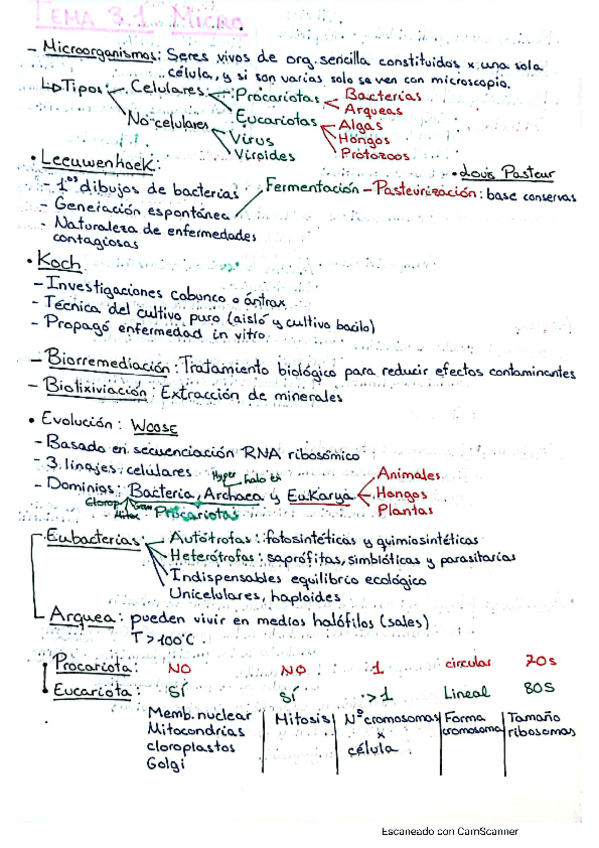 TEMA 3.1 Micro
- Microorganismos: Seres vivos de org. sencilla constituidos x una sola
célula, y si son varias solo se ven con microscopio.
↳ Tipos Celulares Procariotas Bacterias
Arqueas
Eucariotas Algas
No celulares Hongos
Virus Protozoos
Viroides
• Leeuwenhoek: • Louis Pasteur
- 1os dibujos de bacterias Fermentación - Pasteurización: base conservas
- Generación espontánea
- Naturaleza de enfermedades
contagiosas
• Koch
- Investigaciones cabunco o ántrax
- Técnica del cultivo puro (aisló y cultivo bacilo)
- Propagó enfermedad in vitro.
- Biorremediación: Tratamiento biológico para reducir efectos contaminantes
- Biolixiviación: Extracción de minerales
• Evolución: Woose
- Basado en secuenciación RNA ribosómico
- 3 linajes celulares
Hyper halo
- Dominios: Bacteria, Archaea y Eukarya Animales
Hongos
Plantas
Clorop Gram
Mitoc Procariotas
Eubacterias: Autótrofas: fotosintéticas y quimiosintéticas
Heterótrofas: saprófitas, simbióticas y parasitarias
Indispensables equilibrio ecológico
Unicelulares, haploides
Arquea: pueden vivir en medios halófilos (sales)
T > 100°C.
Procariota: NO NO 1 circular 70s
Eucariota: SÍ SÍ >1 Lineal 80S
Memb. nuclear Mitosis Nº cromosomas Forma Tamaño
Mitocondrias x cromosoma ribosomas
cloroplastos célula
Golgi
Escaneado con CamScanner